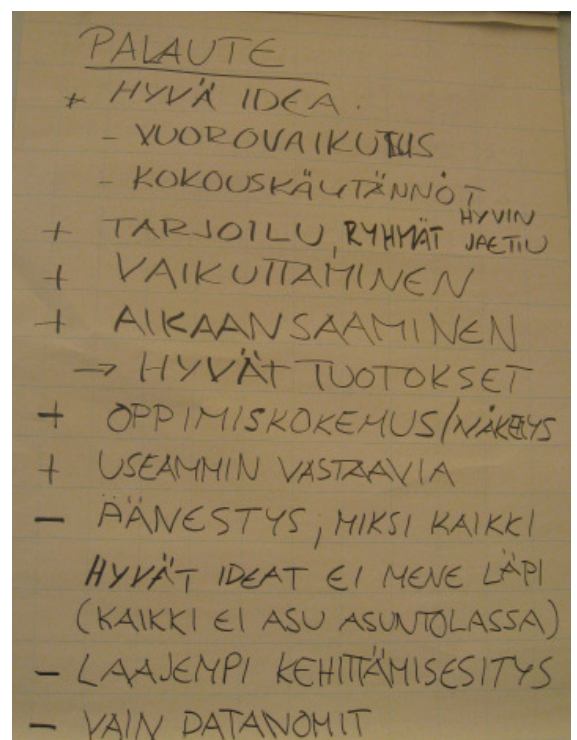 PALAUTE
+ HYVÄ IDEA.
- VUOROVAIKUTUS
- KOKOUSKÄYTÄNNÖT
+ TARJOILU, RYHMÄT HYVIN JAETTU
+ VAIKUTTAMINEN
+ AIKAANSAAMINEN
→ HYVÄT TUOTOKSET
+ OPPIMISKOKEMUS/NÄKEMYS
+ USEAMMIN VASTAAVIA
- ÄÄNESTYS; MIKSI KAIKKI
HYVÄT IDEAT EI MENE LÄPI
(KAIKKI EI ASU ASUNTOLASSA)
- LAAJEMPI KEHITTÄMISESITYS
- VAIN DATANOMIT